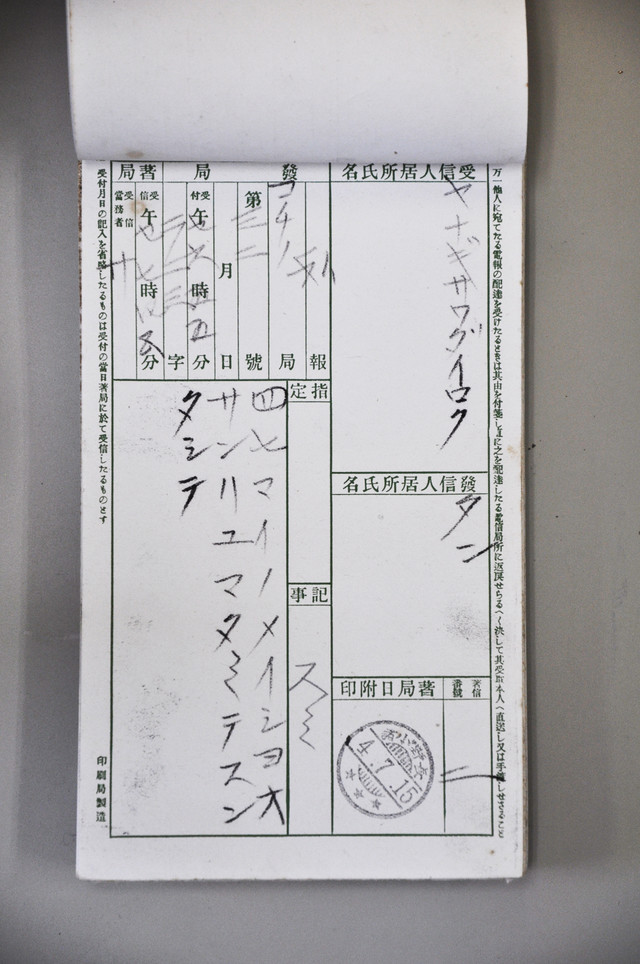 万一他人に宛てたる電報の配達を受けたるときは其由を付箋し直に之を配達したる電信局所に返戻せらるへく決して其受取本人へ直送し又は手渡しせさること
受信人居所氏名
ヤナギサワグイロク
發信人居所氏名
タン
著信番號
二
著局日附印
4.7.15
發局
コチノ
報
局
第
三二
號
月
日
受付
午
時
五
分
字
著局
受信
午
時
分
受信當務者
サ
指定
記事
スミ
四七マイノメイシヨオ
サンリユマタミテスン
タミテ
受付月日の記入を省略したるものは受付の當日著局に於て受信したるものとす
印刷局製造